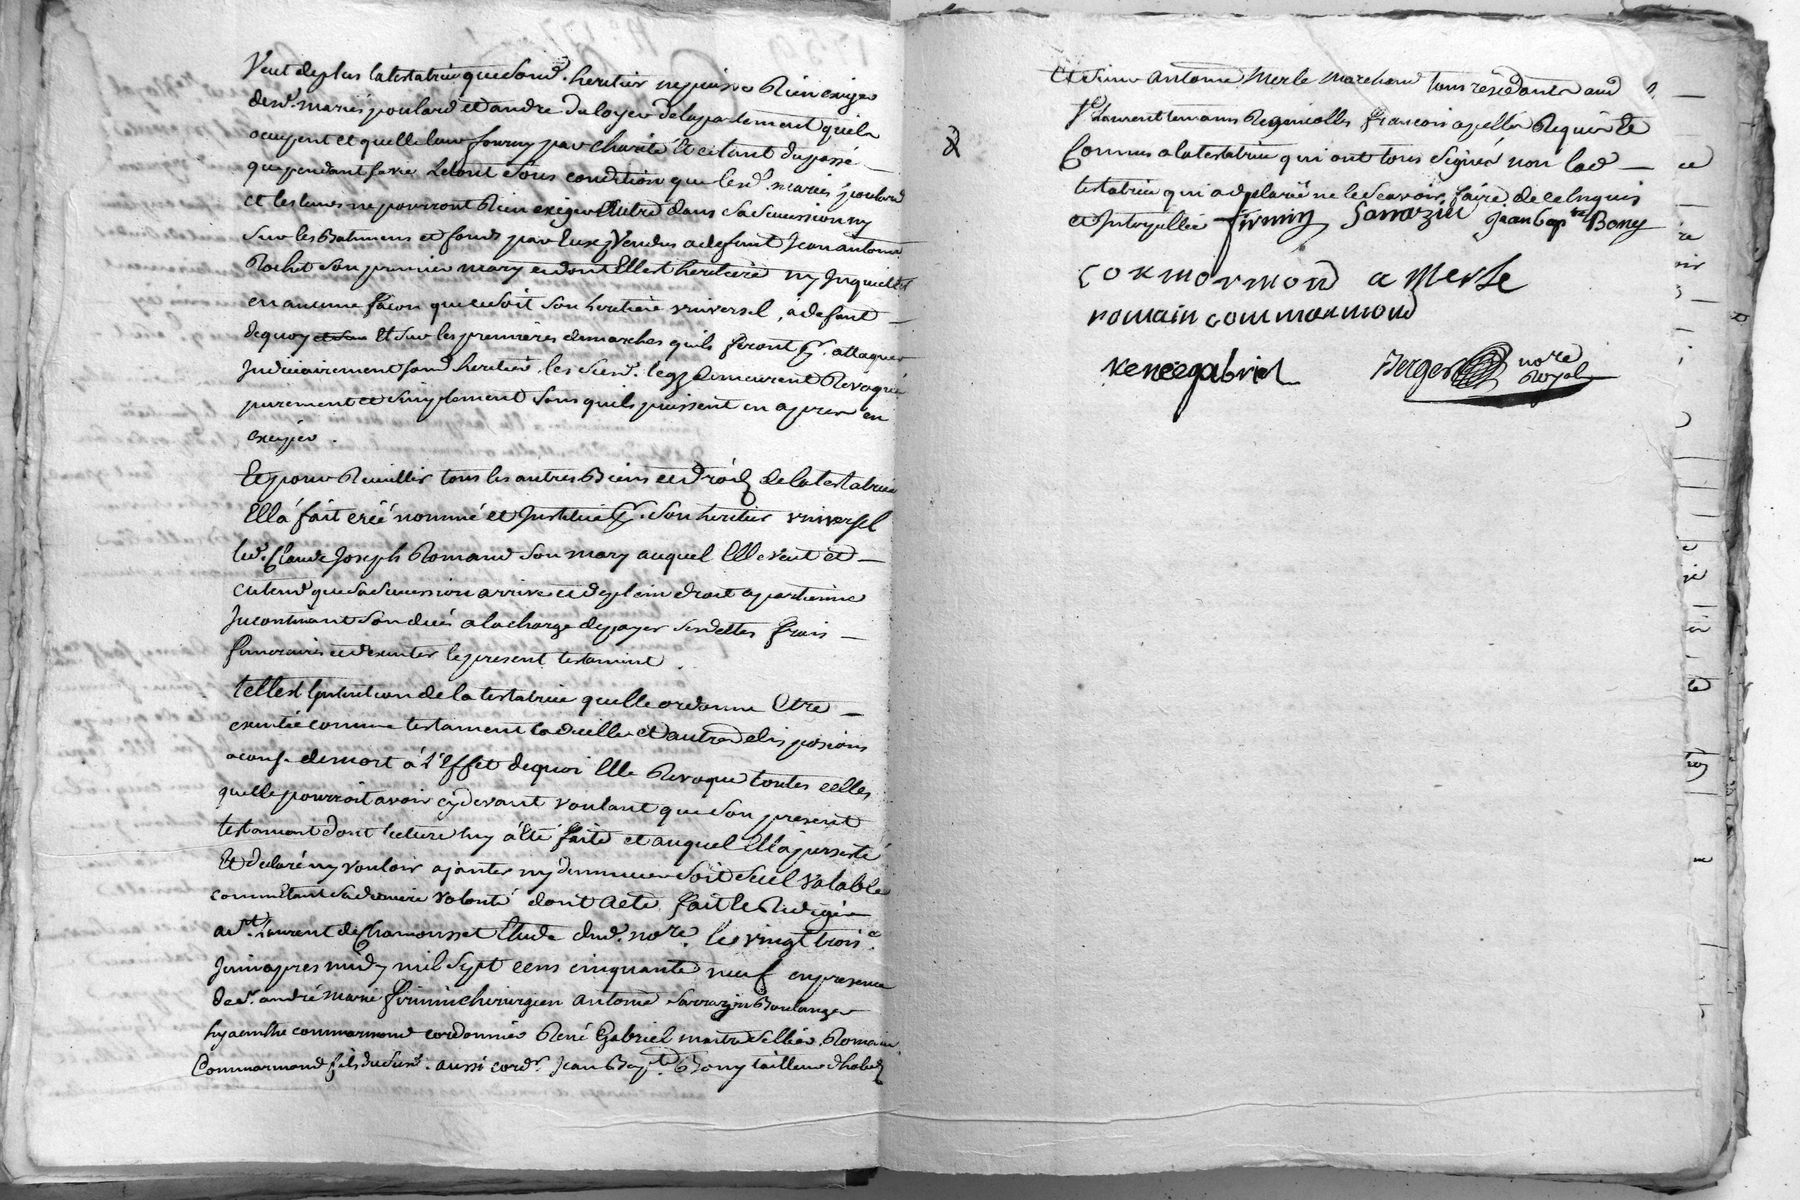 Veut de plus la testatrice que sond. heritier ne puisse Rien exiger
desd. mariés poulard et andre du loyer de lapartement quils
ocupent et quelle leur fourny par charité Et ce tant du passé
que pendant sa vie Letout sous condition que lesd. mariés poulard
et les leurs ne pourront Rien exiger Autre dans sa succession ny
sur les Batimens et fonds par Eux Vendus a defunt Jean antoine
Rochet son premier mary et dont Elle est heritiere ny Inquieter
en aucune façon que ce soit son heritier universel, a defaut
dequoy et sur les premieres demarches quils feront p. attaquer
Judiciairement sond. heritier, les susd. legs Demeurent Revoqués
purement et simplement sans quils puissent en aprés en
exiger.
Et pour Recuillir tous les autres Biens et droits de la testatrice
Ell'a fait créé nommé et Institué p. son heritier universel
led. Claude Joseph Romand son mary auquel Elle veut et
entend que sa succession arrive et de plein droit apartienne
Incontinant son decés a la charge de payer ses dettes frais
funeraires et d'executer le present testament.
telle est lintention de la testatrice quelle ordonne Etre
executée comme testament codicille et autres disposions
a cause de mort á l'Effet dequoi Elle Revoque toutes celles
quelle pourroit avoir cy devant voulant que son present
testament dont lecture luy a été faite et auquel Ell'a persisté
Et declaré ny vouloir ajouter ny diminuer soit seul valable
comme Etant sa derniere volonté dont acte. fait et Redigé
a St. Laurent de Chamousset Etude dud. nore. le vingt trois
Juin apres midy mil sept cens cinquante neuf en presence
de sr. andré marie firmin chirurgien antoine sarrazin Boulanger
hyacinthe commarmond cordonnier René Gabriel maitre sellier Romain
Commarmond fils du susd. aussi cordr. Jean Bapte. Bony tailleur d'habits
et sieur antoine Merle Marchand tous residants aud.
St Laurent temoins Regnicolles françois apellés Requis Et
Connus a la testatrice qui ont tous signés non lad.
testatrice qui a declaré ne le sçavoir faire de ce enquis
et Interpellée firmin Sarrazin Jean bapte Bony
cormormond a Merle
romain commarmond
renéegabriel Berger nore Royal